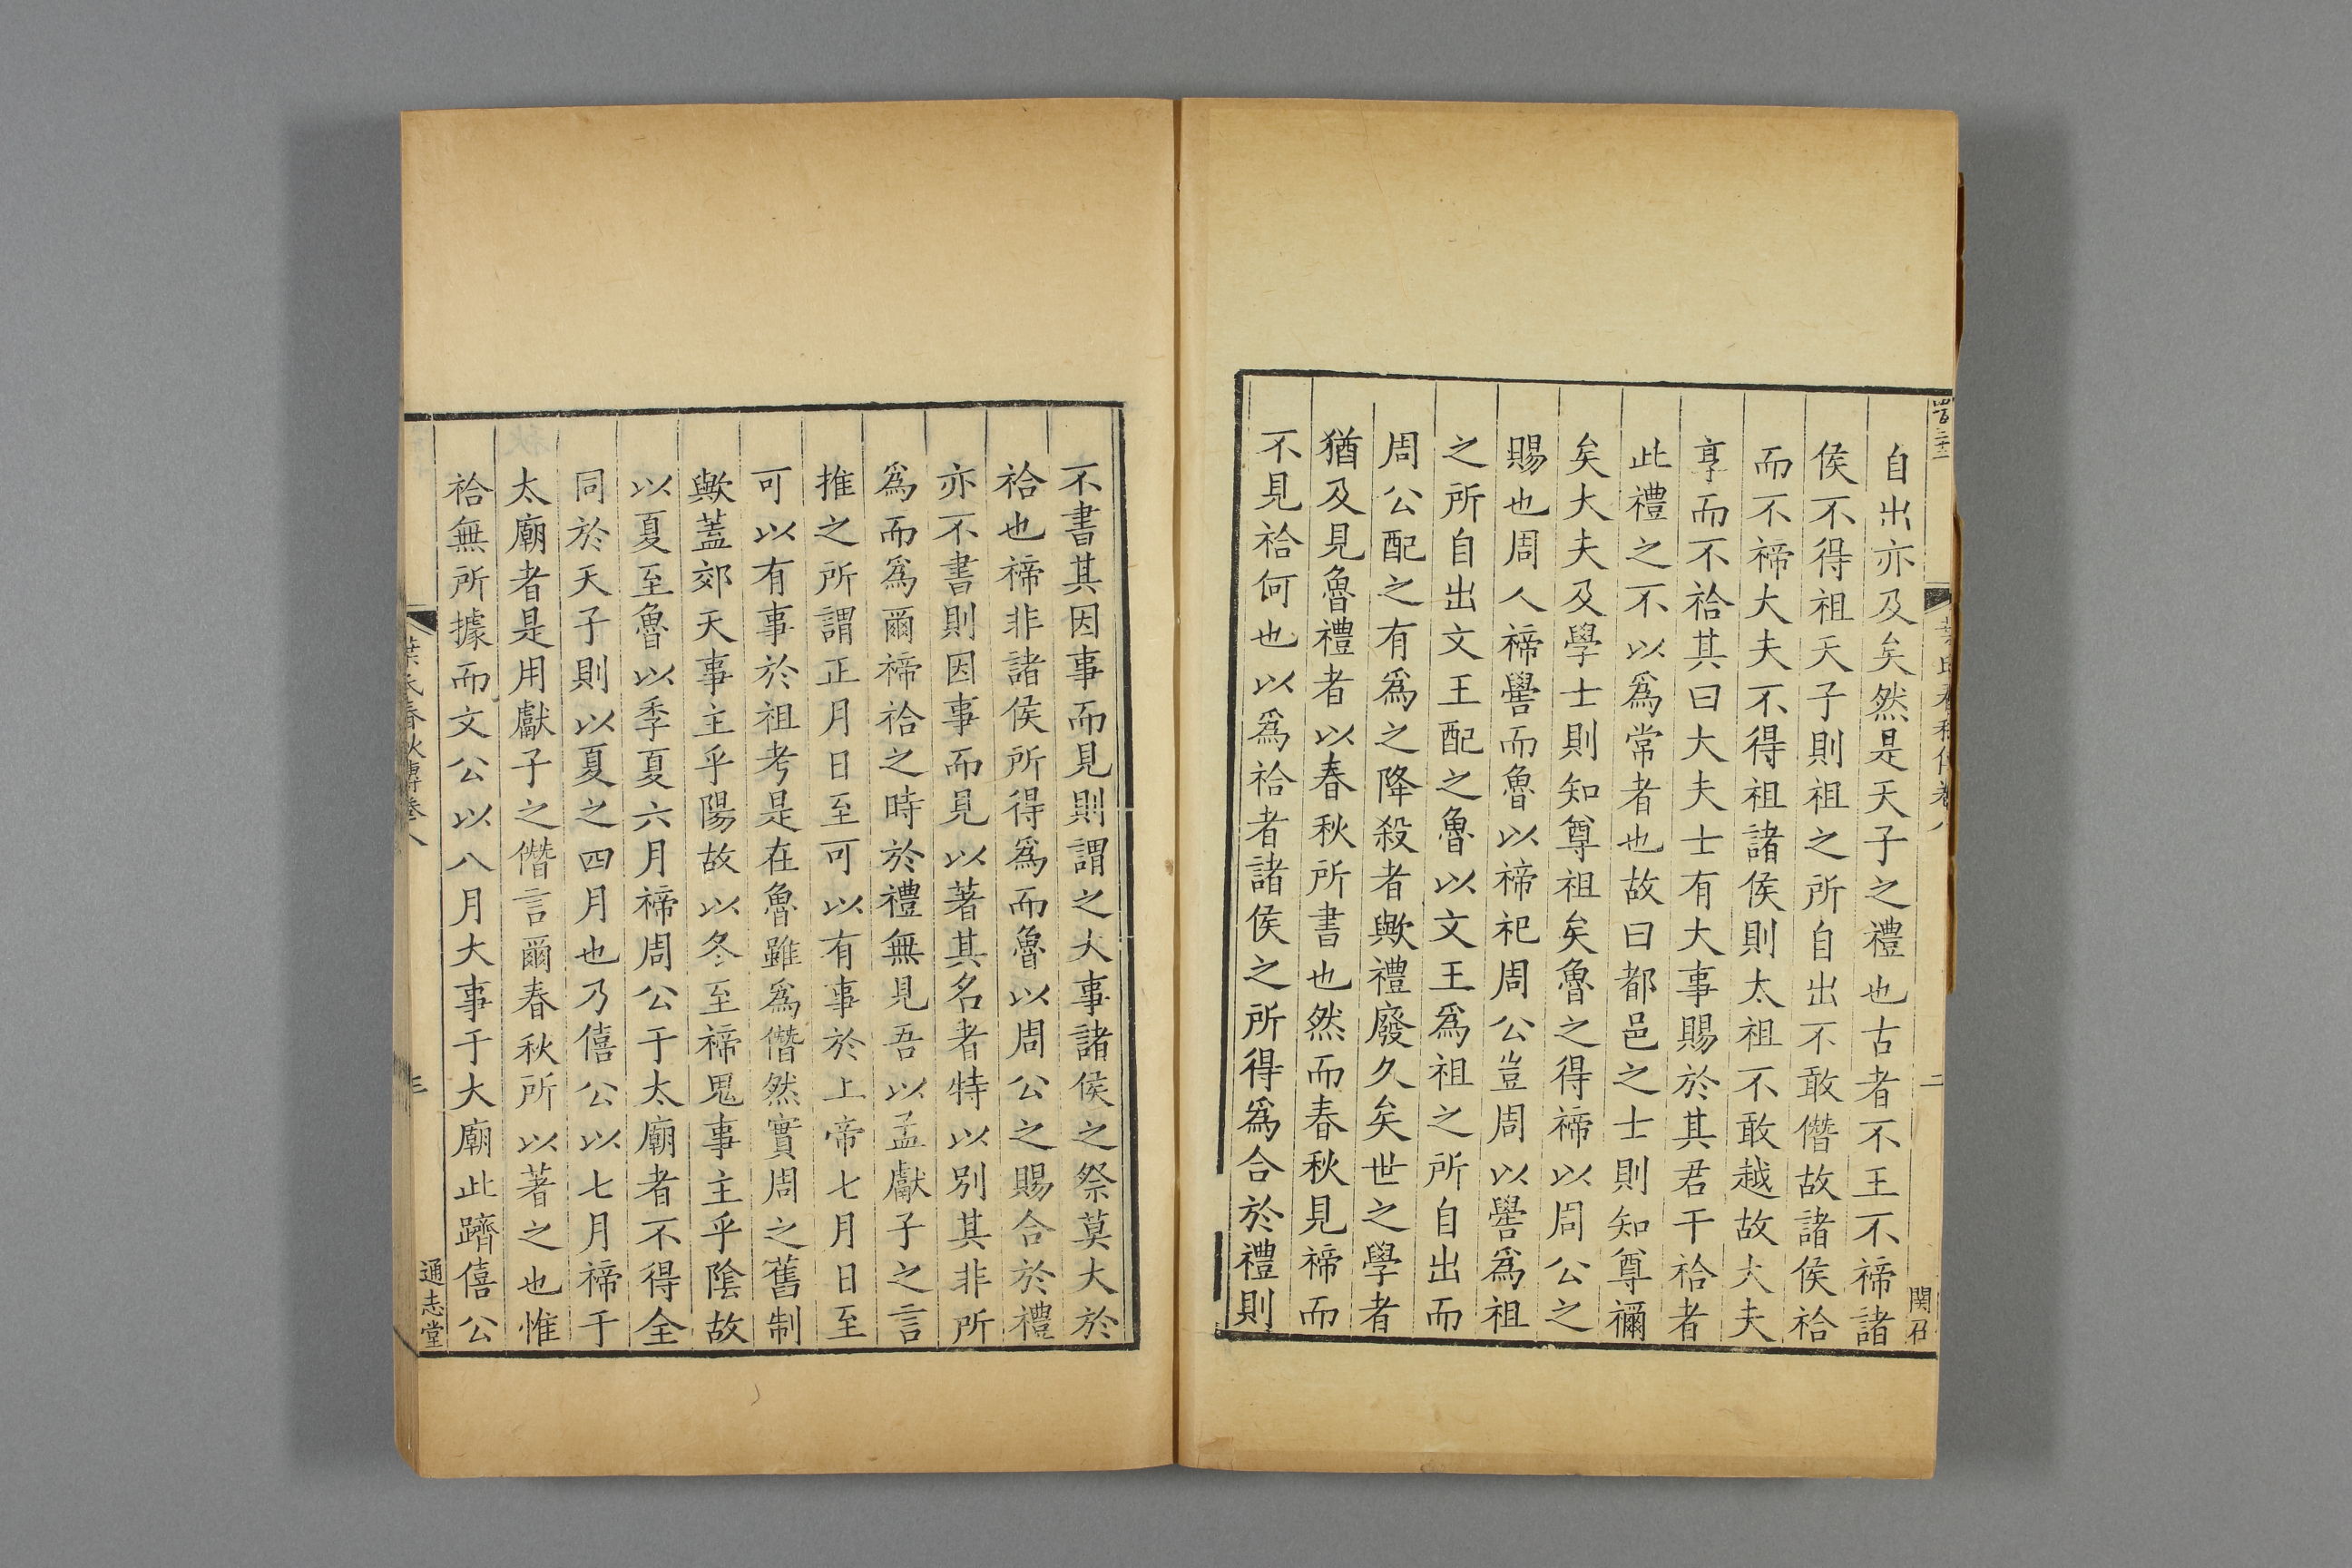 自出亦及矣然是天子之禮也古者不王不禘諸
侯不得祖天子則祖之所自出不敢僭故諸侯祫
而不禘大夫不得祖諸侯則太祖不敢越故大夫
享而不祫其曰大夫士有大事賜於其君干祫者
此禮之不以爲常者也故曰都邑之士則知尊禰
矣大夫及學士則知尊祖矣魯之得禘以周公之
賜也周人禘嚳而魯以禘祀周公豈周以嚳爲祖
之所自出文王配之魯以文王爲祖之所自出而
周公配之有爲之降殺者歟禮廢久矣世之學者
猶及見魯禮者以春秋所書也然而春秋見禘而
不見祫何也以爲祫者諸侯之所得爲合於禮則
葉氏春秋傳卷八
二
関召
不書其因事而見則謂之大事諸侯之祭莫大於
祫也禘非諸侯所得爲而魯以周公之賜合於禮
亦不書則因事而見以著其名者特以別其非所
爲而爲爾禘祫之時於禮無見吾以孟獻子之言
推之所謂正月日至可以有事於上帝七月日至
可以有事於祖考是在魯雖爲僭然實周之舊制
歟蓋郊天事主乎陽故以冬至禘鬼事主乎陰故
以夏至魯以季夏六月禘周公于太廟者不得全
同於天子則以夏之四月也乃僖公以七月禘于
太廟者是用獻子之僭言爾春秋所以著之也惟
祫無所據而文公以八月大事于大廟此躋僖公
葉氏春秋傳卷八
三
通志堂